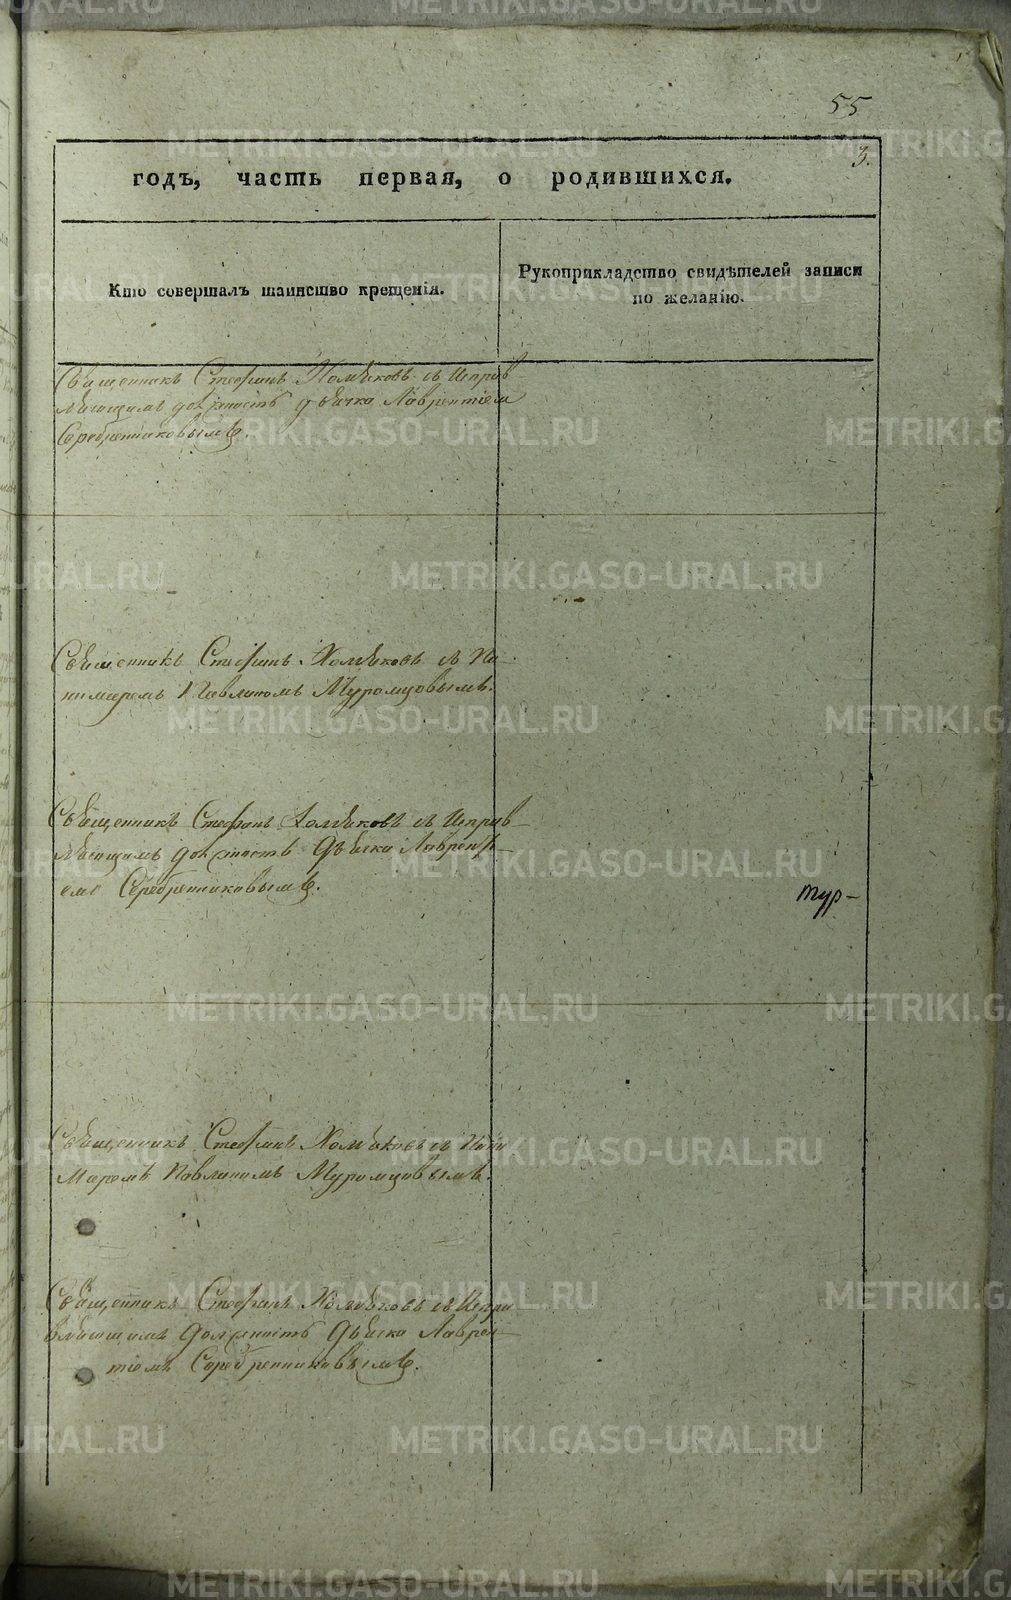 55
3.
годъ, часть первая, о родившихся.
Кто совершалъ таинство крещенія.
Рукоприкладство свидѣтелей записи
по желанію.
Священникъ Стефанъ Холмиковъ съ Исправ
ляющимъ должность дьячка Лаврентіем
Серебренниковымъ.
Священникъ Стефанъ съ По
номаремъ Павлиномъ Муромцовымъ.
Священникъ Стефанъ съ Исправ
ляющимъ должность Дьячка Лаврентi–
емъ Серебренниковымъ.
тур–
Священникъ Стефанъ съ Поно
Маремъ Павлиномъ Муромцовымъ.
Священникъ Стефанъ съ Испра
вляющимъ Должность Дьячка Лаврен–
тіемъ Серебренниковымъ.
METRIKI.GASO-URAL.RU